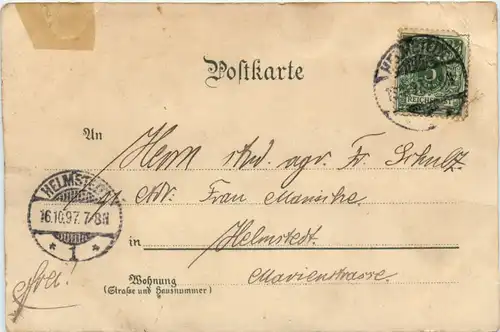 Postkarte
HELMSTEDT
5
REICHSPOST
An
Herrn stud. agr. Fr. Schulz
Adr. Frau
HELMSTEDT
16.10.97. 7-8N
* 1 *
in Helmstedt.
Wohnung Marienstrasse.
(Straße und Hausnummer)